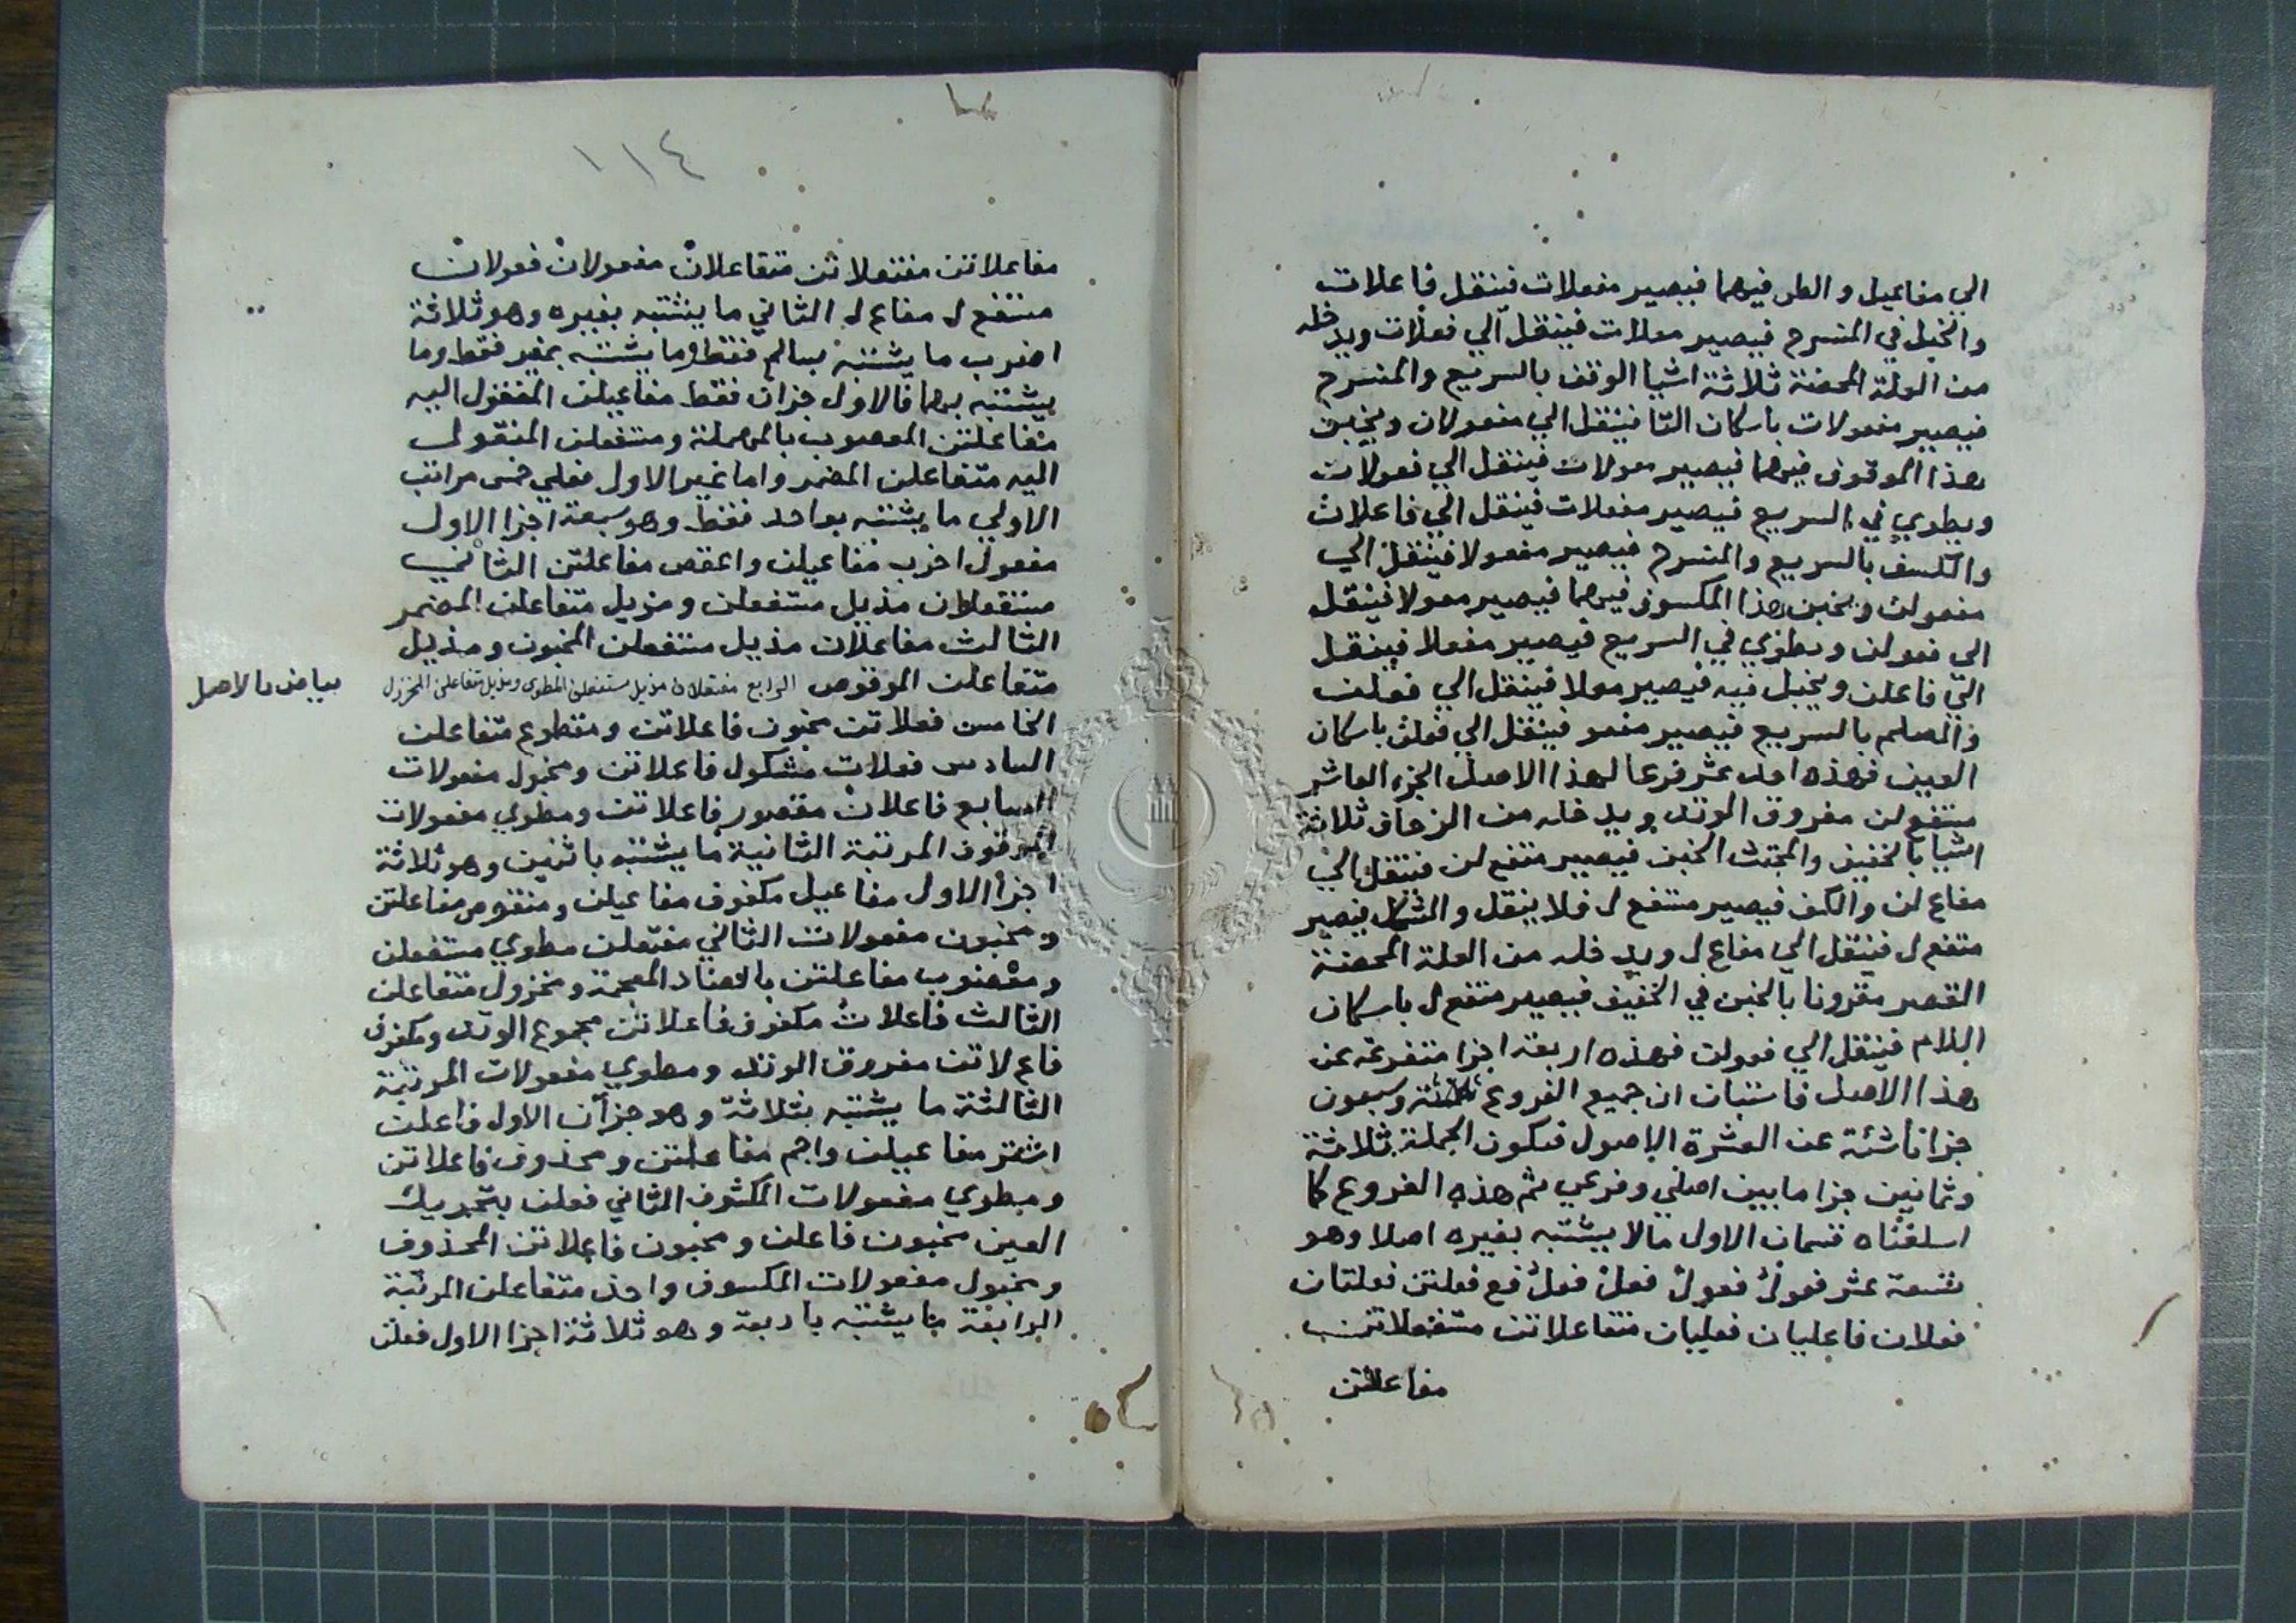 الي مفاعيل والطي فيهما فيصير مفعلات فينتقل فاعلات
والخبل في المنسرح فيصير معلات فينتقل الي فعلات ويدخله
من العلة المحضة ثلاثة اشيا الوقف بالسريع والمنسرح
فيصير مفعولات باسكان التا فينتقل الي مفعولان ويخبن
هذا الموقوف فيهما فيصير معولات فينتقل الي فعولات
ويطوي في السريع فيصير مفعلات فينتقل الي فاعلات
والكسف بالسريع والمنسرح فيصير مفعولا فينتقل الي
مفعولن ويخبن هذا المكسوف فيهما فيصير معولا فينتقل
الي فعولن ويطوي في السريع فيصير مفعلا فينتقل
الي فاعلن ويخبل فيه فيصير معلا فينتقل الي فعلن
والصلم بالسريع فيصير مفعو فينتقل الي فعلن باسكان
العين فهذه احد عشر فرعا لهذا الاصل الجزء العاشر
مستفع لن مفروق الوتد ويدخله من الزحاف ثلاثة
اشيا بالخفيف والمجتث الخبن فيصير متفع لن فينتقل الي
مفاع لن والكف فيصير مستفع ل فلا ينقل والشكل فيصير
متفع ل فينتقل الي مفاع ل ويدخله من العلة المحضة
القصر مقرونا بالخبن في الخفيف فيصير متفع ل باسكان
اللام فينتقل الي فعولن فهذه اربعة اجزا متفرعة عن
هذا الاصل فاستبان ان جميع الفروع ثلاثة وسبعون
جزا ناشئة عن العشرة الاصول فتكون الجملة ثلاثة
وثمانين جزا ما بين اصلي وفرعي ثم هذه الفروع كما
اسلفناه قسمان الاول مالا يشتبه بغيره اصلا وهو
تسعة عشر فعولُ فعولْ فعلْ فعلُ فع فعلتن فعلتان
فعلان فاعليان فعليان متفاعلاتن مستفعلاتن
مفاعلاتن
١١٤
مفاعلاتن مفتعلاتن متفاعلانْ مفعولانْ فعولان
مستفع ل مفاع ل الثاني ما يشتبه بغيره وهو ثلاثة
اضرب ما يشتبه بسالم فقط وما يشتبه بمغير فقط وما
يشتبه بهما فالاول جزان فقط مفاعيلن المنقول اليه
مفاعلتن المعصوب بالمهملة ومستفعلن المنقول
اليه متفاعلن المضمر واما غير الاول فعلي خمس مراتب
الاولي ما يشتبه بواحد فقط وهو سبعة اجزا الاول
مفعول اخرب مفاعيلن واعقص مفاعلتن الثاني
مستفعلان مذيل مستفعلن ومذيل متفاعلن المضمر
الثالث مفاعلان مذيل مستفعلن المخبون ومذيل
متفاعلن الموقوص الرابع مفتعلان مذيل مستفعلن المطوي ومذيل متفاعلن المخزول
بياض بالاصل
الخامس فعلاتن مخبون فاعلاتن ومقطوع متفاعلن
السادس فعلات مشكول فاعلاتن ومخبول مفعولات
السابع فاعلانْ مقصور فاعلاتن ومطوي مفعولات
الموقوف المرتبة الثانية ما يشتبه باثنين وهو ثلاثة
اجزأ الاول مفاعيل مكفوف مفاعيلن ومنقوص مفاعلتن
ومخبون مفعولات الثاني مفتعلن مطوي مستفعلن
ومعضوب مفاعلتن بالضاد المعجمة ومخزول متفاعلن
الثالث فاعلاتُ مكفوف فاعلاتن مجموع الوتد ومكفوف
فاع لاتن مفروق الوتد ومطوي مفعولات المرتبة
الثالثة ما يشتبه بثلاثة وهو جزآن الاول فاعلن
اشتر مفاعيلن واجم مفاعلتن ومحذوف فاعلاتن
ومطوي مفعولات المكشوف الثاني فعلن بتحريك
العين مخبون فاعلن ومخبون فاعلاتن المحذوف
ومخبول مفعولات المكسوف واحذ متفاعلن المرتبة
الرابعة ما يشتبه باربعة وهو ثلاثة اجزا الاول فعلن